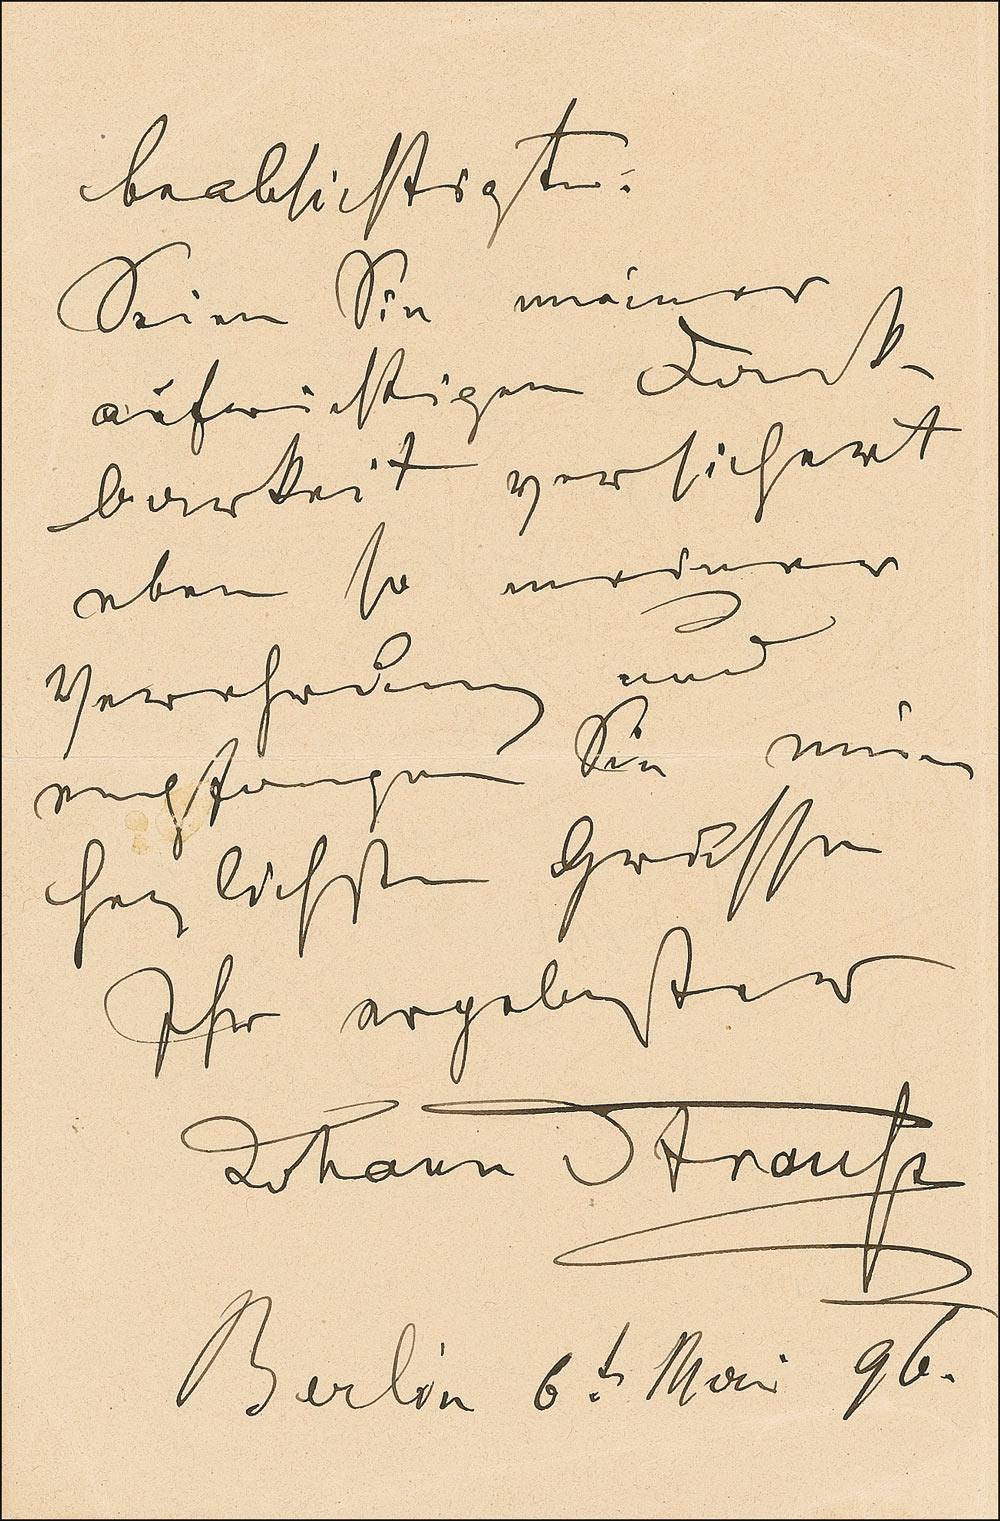 beabsichtigte.
Seien Sie meiner
aufrichtigen Dank-
barkeit versichert
eben so meiner
Verehrung und
empfangen Sie mein
herzlichsten Grüsse
Ihr ergebenster
Johann Strauss
Berlin 6t. Mai 96.